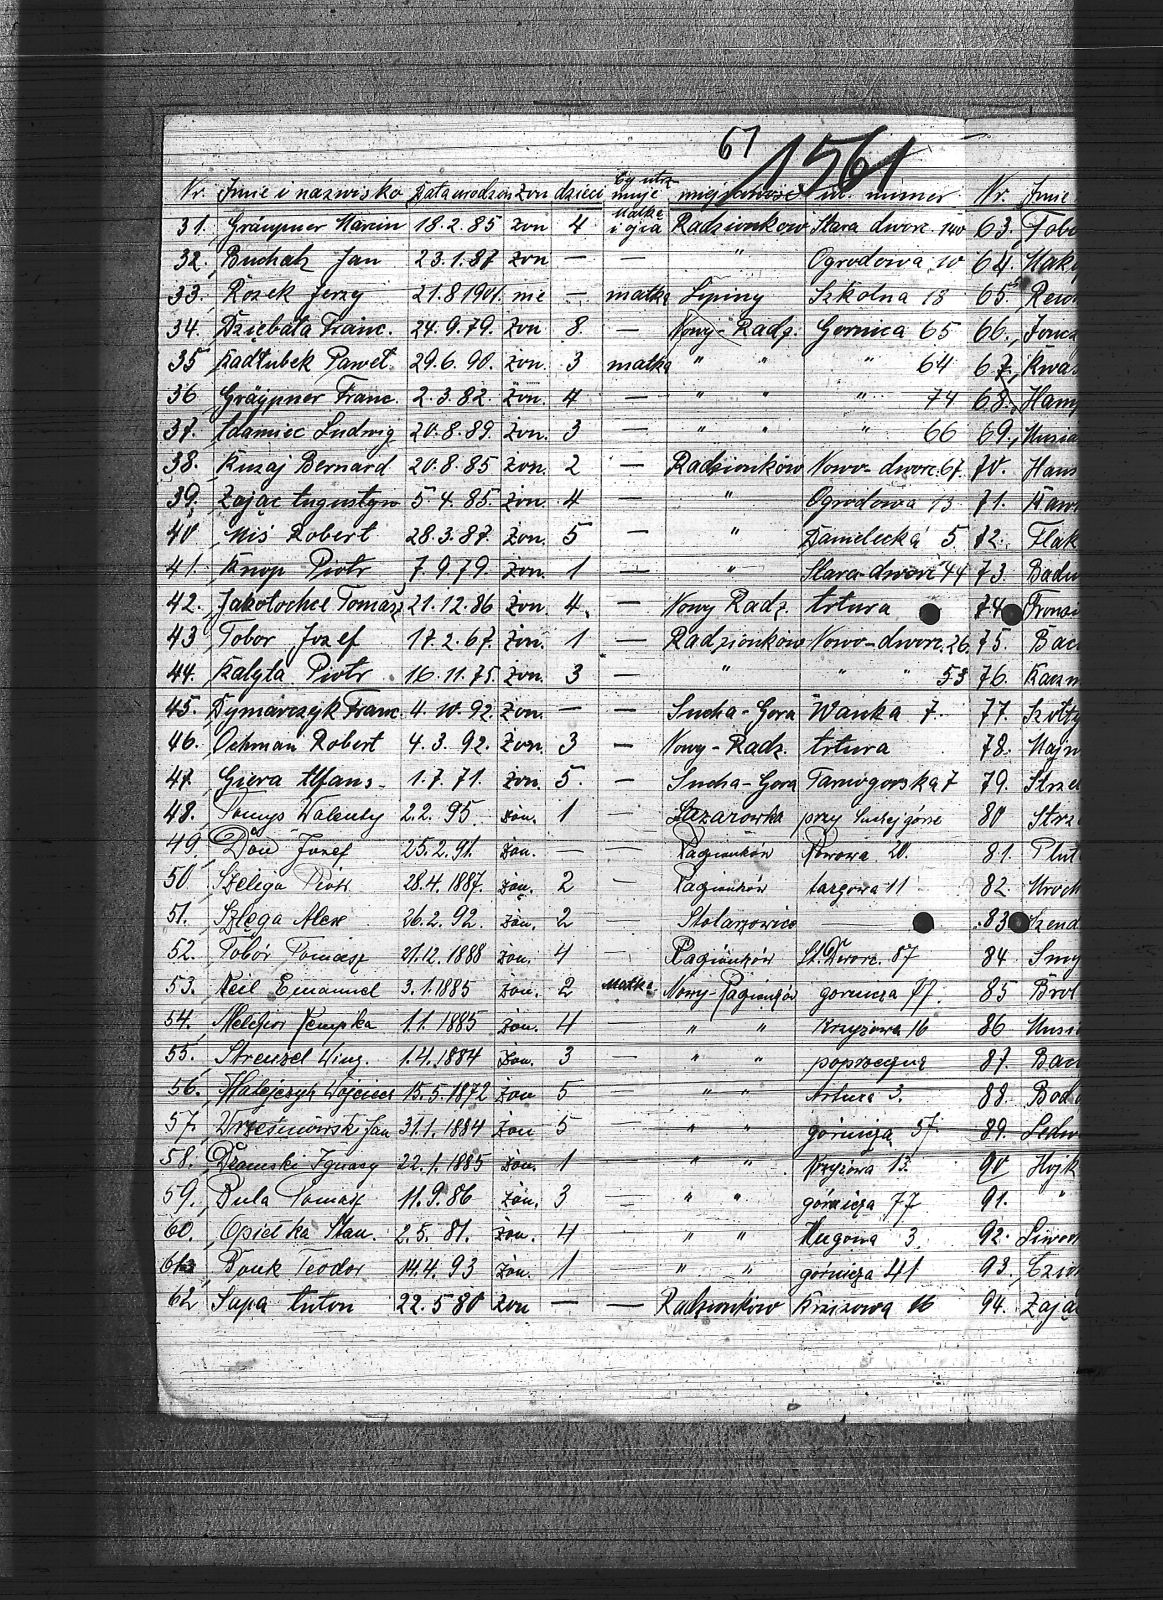 67 1561
Nr. Imie i nazwisko Data urodzen żon dzieci czy utrz muje miejscowość ul. numer Nr. Imie
31. Gräupner Marcin 18.2.85 żon 4 Matka i ojca Radzionków Stara dworc. 140 63. Tobo
32. Buchatz Jan 23.1.87 żon — — " Ogrodowa 10 64. Mak
33. Rozek Jerzy 21.8.1901. nie — matka Lipiny Szkolna 18 65.
34. Dziębała Franc. 24.9.79. żon 8. — Nowy-Radz. Gornica 65 66.
35 Kadłubek Paweł 29.6.90. żon. 3 matka " " " 64 67. Kwa
36 Gräupner Franc. 2.3.82. żon. 4 — " " " 74 68. Hamp
37. Adamiec Ludwig 20.8.89. żon. 3 — " " " 66 69. Musia
38. Kuzaj Bernard 20.8.85 żon. 2 — Radzionków Nowo-dworc. 67. 70. Haus
39. Zając Augustyn 5 4.85. żon. 4 — " Ogrodowa 13 71. Kaw
40 Miś Robert 28.3.87. żon. 5 — " Danielecká 5. 72. Flak
41. Knop Piotr 7.9.79. żon. 1 — " Stara-dworc 44 73. Badu
42. Jakołochel Tomasz 21.12.86 żon. 4. — Nowy Radz. Artura 74
43 Tobor Jozef 17.2.67. żon. 1 — Radzionków Nowo-dworc. 26. 75. Bac
44. Kalyta Piotr 16.11.75. żon. 3 — " " " 53 76. Kaczm
45. Dymarczyk Franc. 4.10.92. żon. — — Sucha-Gora Wańka 7. 77.
46. Ochman Robert 4.3.92. żon. 3 — Nowy-Radz. Artura 78. Majn
47. Giera Alfons 1.7.71. żon. 5. — Sucha-Gora Tarnogorska 7 79. Strze
48. Somys Walenty 2.2.95 żon. 1 — Lazarowka przy Suchej górze 80 Strz
49 Doń Jozef 25.2.91. żon. — — Radzionków 20. 81. Plut
50. Szeliga Piotr 28.4.1887. żon. 2 — Radzionków targowa 11 82. Wroch
51. Szlęga Alex 26.2.92. żon. 2 — Stolarzowice 83
52. Tobór Tomasz 21.12.1888 żon. 4 — Radzionków St. Dworc. 87 84. Smy
53. Keil Emanuel 3.1.1885 żon. 2 Matka Nowy-Radzionków gornicza 77. 85 Brol
54. Melchior Kempka 1.1.1885 żon. 4 — " " Krzyżowa 16 86 Musi
55. Strenzel Winz. 1.4.1884 żon. 3 — " " poprzeczna 87. Bac
56. Matejczyk Wojciech 15.5.1872 żon 5 — " " Artura 3. 88. Bod
57. Wrześniowski Jan 31.1.1884 żon 5 — " " górnicza 57. 89. Ledw
58. Dramski Ignacy 22.1.1885 żon. 1 — " " Krzyżowa 13. 90 Hyjk
59. Bula Tomasz 11.9.86 żon. 3 — " " górnicza 77 91. "
60. Opiełka Stan. 2.5.81. żon. 4 — " " 3. 92. Siwo
61 Bonk Teodor 14.4.93 żon. 1 — " " górnicza 41 93.
62 Sapa Anton 22.5 80 żon — — Radzionków Krziżowa 16 94. Zają